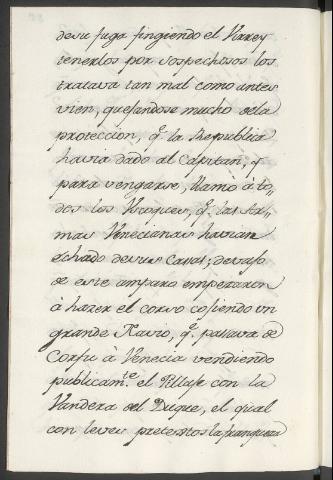 desu fuga fingiendo el Virrey
tenerlos por sospechosos los
tratava tan mal como antes
vien, quejandose mucho dela
proteccion, q.^e la Republica
havia dado al Capitan, y
para vengarse, llamò à to„
dos los Vscoques, q.^e las Ar„
mas Venecianas havian
echado desus Casas; devajo
de este amparo empezaron
à hazer el corso cojiendo vn
grande Navio, q.^e passava de
Corfu à Venecia vendiendo
publicam.^te el Pillaje con la
Vandera del Duque, el qual
con leves pretextos la franqueza